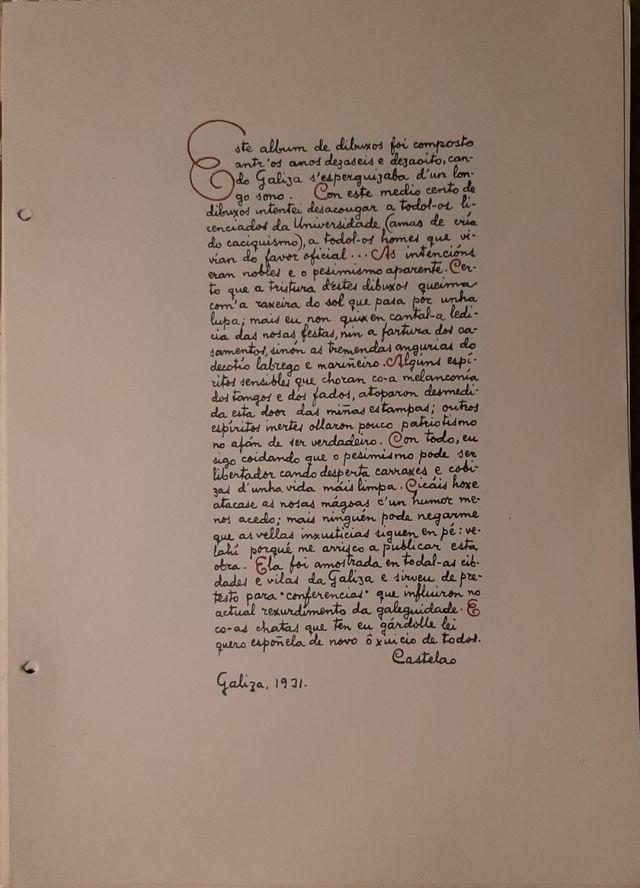 Este album de dibuxos foi composto
antr'os anos dezaseis e dezaoito, can-
do Galiza s'esperguizaba d'un lon-
go sono. Con este medio cento de
dibuxos intentei desacougar a todol-os li-
cenciados da Universidade (amas de cría
do caciquismo), a todol-os homes que vi-
vían do favor oficial... As intencións
eran nobles e o pesimismo aparente. Cer-
to que a tristura d'estes dibuxos queima
com'a raxeira do sol que pasa por unha
lupa; mais eu non quixen cantal-a ledi-
cia das nosas festas, nin a fartura dos ca-
samentos, sinón as tremendas angurias do
decotío labrego e mariñeiro. Algúns espí-
ritos sensibles que choran co-a melanconía
dos tangos e dos fados, atoparon desmedi-
da esta door das miñas estampas; outros
espíritos inertes ollaron pouco patriotismo
no afán de ser verdadeiro. Con todo, eu
sigo coidando que o pesimismo pode ser
libertador cando desperta carraxes e cobi-
zas d'unha vida máis limpa. Cicáis hoxe
atacase as nosas mágoas c'un humor me-
nos acedo; mais ninguén pode negarme
que as vellas inxusticias siguen en pé: ve-
lahí porqué me arrisco a publicar esta
obra. Ela foi amostrada en todal-as cib-
dades e vilas da Galiza e sirveu de pre-
testo para "conferencias" que influiron no
actual rexurdimento da galeguidade. E
co-as chatas que ten eu gárdolle lei
quero espoñela de novo ô xuicio de todos.
Castelao
Galiza, 1931.